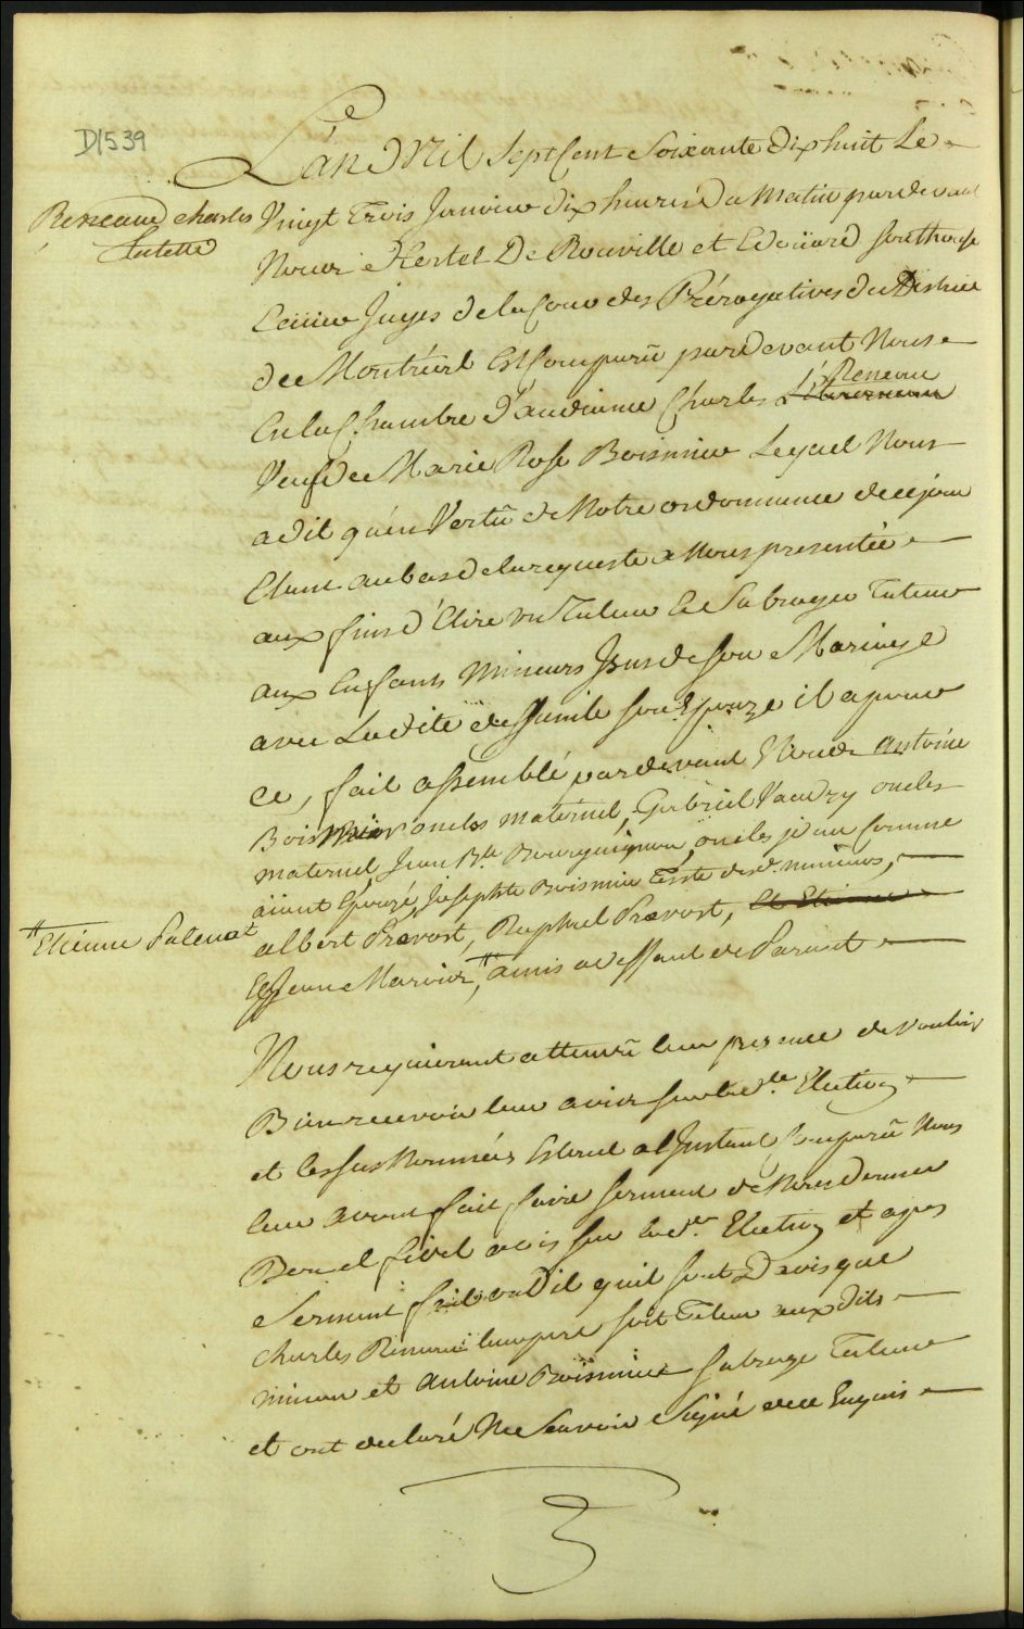 D1539
L'an Mil Sept Cent Soixante Dix huit Le
Reneaud charles
Tutelle
Vingt Trois Janvier dix heures Du Matin pardevant
Nous Hertel De Rouville et Edoüard Southouse
Ecuier Juges de la Cour des Prérogatives du District
de Montréal Est Comparû pardevant Nous
En la Chambre d'audiance Charles Reneau
Veuf de Marie Rose Boismier Lequel Nous
a dit qu'en Vertû de Notre ordonnance de ce jour
Etant au bas de la requeste a Nous presentée
aux fins d'Elire un Tuteur et Subroger Tuteur
aux Enfants Mineurs Issus de son Mariage
avec Ladite deffunte son Epouze il a pour
ce, fait assemblé pardevant Nous Antoine
Boismier oncles maternel, Gabriel Vaudry oncles
maternel, Jean Bte Bourguignon, oncles comme
aiiant Epouzé Josephte Boismier Tante desd. mineurs,
albert Prevost, Raphael Prevost,
# Etienne
Et Jean Marier, # amis a deffaut de Parent
Nous requierant attendû leur presence de Vouloir
Bien recevoir leur avis sur lade. Election
et les sus Nommés Etant a l'Instant Comparû Nous
leur avons fait faire serment de Nous Donner
Bon et fidel avis sur lade. Election et apres
Serment fait ont dit quil sont Davis que
Charles Reneau leur pere soit Tuteur aux dits
mineur et Antoine Boismier subroge Tuteur
et ont declaré Ne Scavoir Signé de ce Enquis